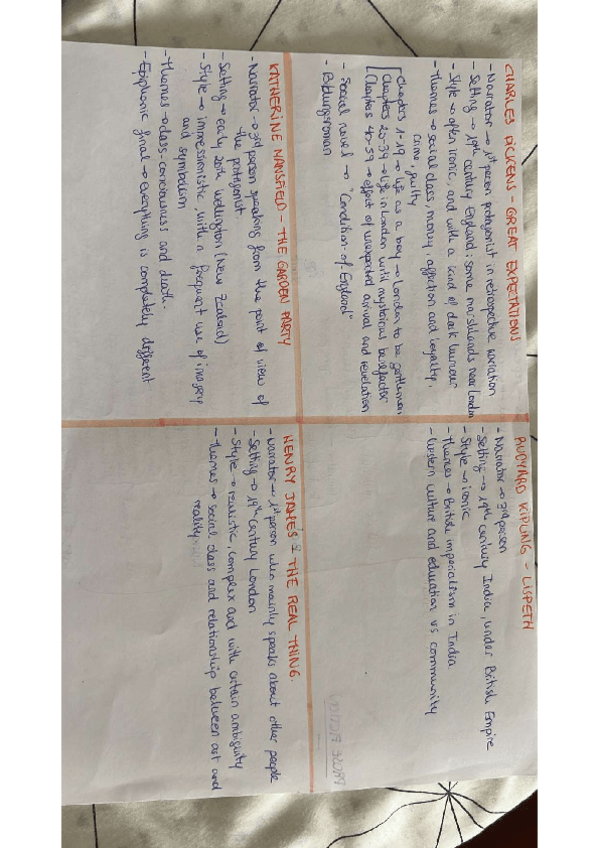 CHARLES DICKENS - GREAT EXPECTATIONS
- Narrator → 1st person protagonist in retrospective narration
- Setting → 19th century England: some marshlands near London
- Style → often ironic, and with a kind of dark humour
- Themes → social class, money, affliction and loyalty,
crime, guilty
Chapters 1-19 → life as a boy → London to be gentleman
Chapters 20-39 → life in London until mysterious benefactor
Chapters 40-59 → effect of unexpected arrival and revelation
- Social novel → "Condition of England"
- Bildungsroman
RUDYARD KIPLING - LISPETH
- Narrator → 3rd person
- Setting → 19th century India, under British Empire
- Style → ironic
- Themes → British imperialism in India.
- Western culture and education vs community
KATHERINE MANSFIELD - THE GARDEN PARTY
- Narrator → 3rd person speaking from the point of view of
the protagonist.
- Setting → early 20th Wellington (New Zealand)
- Style → impressionistic, with a frequent use of imagery
and symbolism
- Themes → class-consciousness and death.
- Epiphanic final → everything is completely different
HENRY JAMES - THE REAL THING.
- Narrator → 1st person who mainly speaks about other people
- Setting → 19th century London
- Style → realistic, complex and with certain ambiguity
- Themes → social class and relationship between art and
reality.